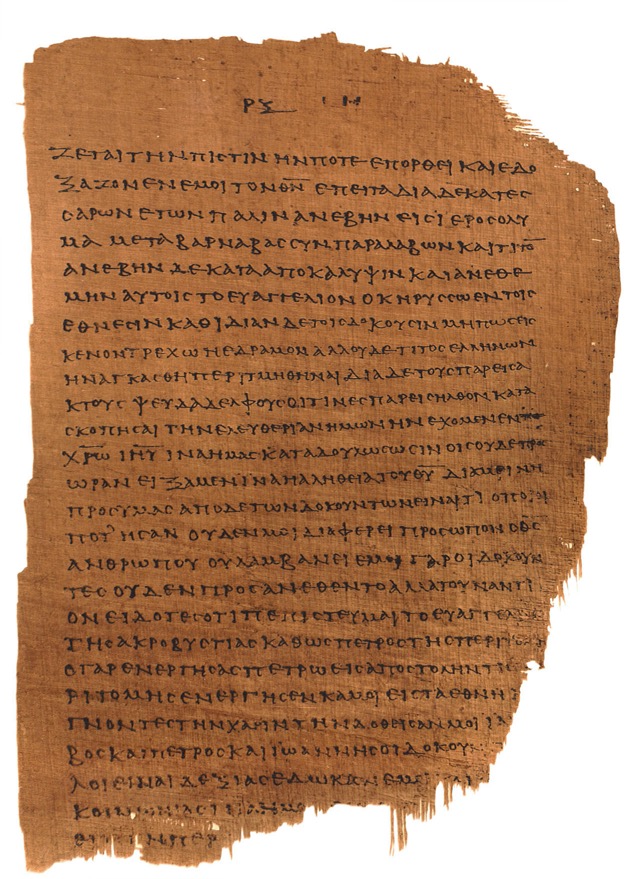 ΡΞ Ι Η
ΖΕΤΑΙ ΤΗΝ ΠΙϹΤΙΝ ΗΝ ΠΟΤΕ ΕΠΟΡΘΕΙ ΚΑΙ ΕΔΟ
ΞΑΖΟΝ ΕΝ ΕΜΟΙ ΤΟΝ Θ̅Ν̅ ΕΠΕΙΤΑ ΔΙΑ ΔΕΚΑΤΕϹ
ϹΑΡΩΝ ΕΤΩΝ ΠΑΛΙΝ ΑΝΕΒΗΝ ΕΙϹ ΙΕΡΟϹΟΛΥ
ΜΑ ΜΕΤΑ ΒΑΡΝΑΒΑϹ ϹΥΝΠΑΡΑΛΑΒΩΝ ΚΑΙ ΤΙΤΟ̅
ΑΝΕΒΗΝ ΔΕ ΚΑΤΑ ΑΠΟΚΑΛΥΨΙΝ ΚΑΙ ΑΝΕΘΕ
ΜΗΝ ΑΥΤΟΙϹ ΤΟ ΕΥΑΓΓΕΛΙΟΝ Ο ΚΗΡΥϹϹΩ ΕΝ ΤΟΙϹ
ΕΘΝΕϹΙΝ ΚΑΘ ΙΔΙΑΝ ΔΕ ΤΟΙϹ ΔΟΚΟΥϹΙΝ ΜΗ ΠΩϹ ΕΙϹ
ΚΕΝΟΝ ΤΡΕΧΩ Η ΕΔΡΑΜΟΝ ΑΛΛ ΟΥΔΕ ΤΙΤΟϹ ΕΛΛΗΝ ΩΝ
ΗΝΑΓΚΑϹΘΗ ΠΕΡΙΤΜΗΘΗΝΑΙ ΔΙΑ ΔΕ ΤΟΥϹ ΠΑΡΕΙϹΑ
ΚΤΟΥϹ ΨΕΥΔΑΔΕΛΦΟΥϹ ΟΙΤΙΝΕϹ ΠΑΡΕΙϹΗΛΘΟΝ ΚΑΤΑ
ϹΚΟΠΗϹΑΙ ΤΗΝ ΕΛΕΥΘΕΡΙΑΝ ΗΜΩΝ ΗΝ ΕΧΟΜΕΝ ΕΝ
Χ̅Ρ̅Ω̅ Ι̅Η̅Υ̅ ΙΝΑ ΗΜΑϹ ΚΑΤΑΔΟΥΛΩϹΩϹΙΝ ΟΙϹ ΟΥΔΕ ΠΡΟϹ
ΩΡΑΝ ΕΙΞΑΜΕΝ ΙΝΑ Η ΑΛΗΘΕΙΑ ΤΟΥ Θ̅Υ̅ ΔΙΑΜΕΙΝΗ
ΠΡΟϹ ΥΜΑϹ ΑΠΟ ΔΕ ΤΩΝ ΔΟΚΟΥΝΤΩΝ ΕΙΝΑΙ ΤΙ ΟΠΟΙΟΙ
ΠΟΤ ΗϹΑΝ ΟΥΔΕΝ ΜΟΙ ΔΙΑΦΕΡΕΙ ΠΡΟϹΩΠΟΝ Ο Θ̅Ϲ̅
ΑΝΘΡΩΠΟΥ ΟΥ ΛΑΜΒΑΝΕΙ ΕΜΟΙ ΓΑΡ ΟΙ ΔΟΚΟΥΝ
ΤΕϹ ΟΥΔΕΝ ΠΡΟϹΑΝΕΘΕΝΤΟ ΑΛΛΑ ΤΟΥΝΑΝΤΙ
ΟΝ ΕΙΔΟΤΕϹ ΟΤΙ ΠΕΠΙϹΤΕΥΜΑΙ ΤΟ ΕΥΑΓΓΕΛΙΟΝ
ΤΗϹ ΑΚΡΟΒΥϹΤΙΑϹ ΚΑΘΩϹ ΠΕΤΡΟϹ ΤΗϹ ΠΕΡΙ
Ο ΓΑΡ ΕΝΕΡΓΗϹΑϹ ΠΕΤΡΩ ΕΙϹ ΑΠΟϹΤΟΛΗΝ ΤΗϹ
ΡΙΤΟΜΗϹ ΕΝΕΡΓΗϹΕΝ ΚΑΜΟΙ ΕΙϹ ΤΑ ΕΘΝΗ
ΓΝΟΝΤΕϹ ΤΗΝ ΧΑΡΙΝ ΤΗΝ ΔΟΘΕΙϹΑΝ ΜΟΙ ΙΑ
ΒΟϹ ΚΑΙ ΠΕΤΡΟϹ ΚΑΙ ΙΩΑΝΝΗϹ ΟΙ ΔΟΚΟΥΝ
ΛΟΙ ΕΙΝΑΙ ΔΕΞΙΑϹ ΕΔΩΚΑΝ ΕΜΟΙ
ΚΟΙΝΩΝΙΑϹ ΙΝΑ ΗΜΕΙ